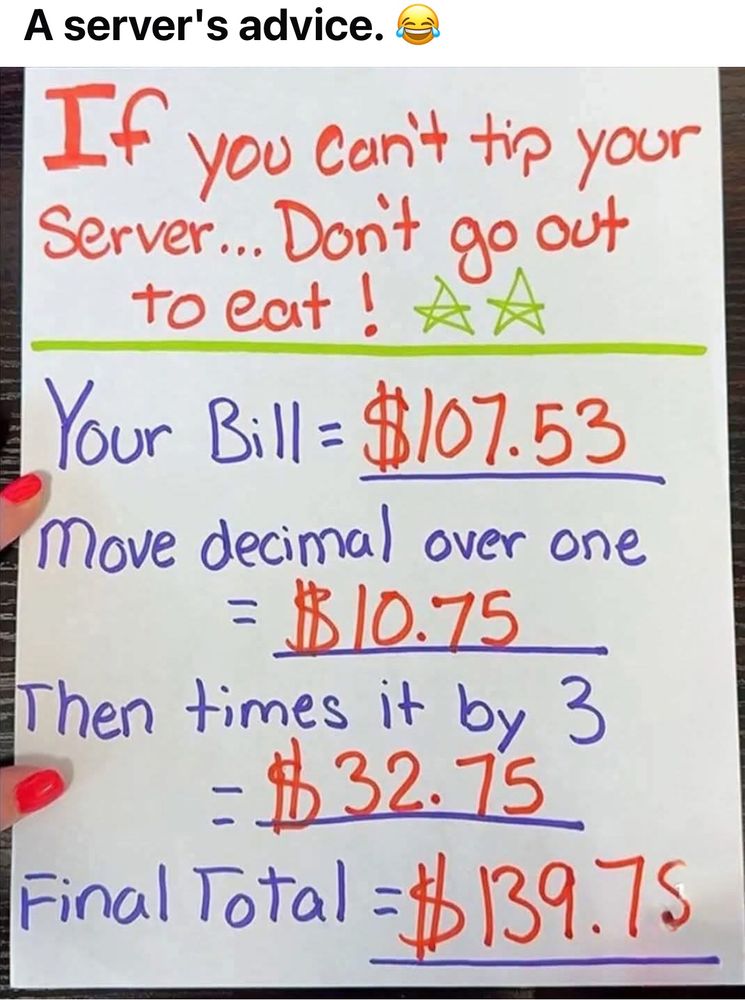 A server's advice. 😂
If you can't tip your
Server... Don't go out
to eat! ☆☆
Your Bill = $107.53
Move decimal over one
= $10.75
Then times it by 3
= $32.75
Final Total = $139.75